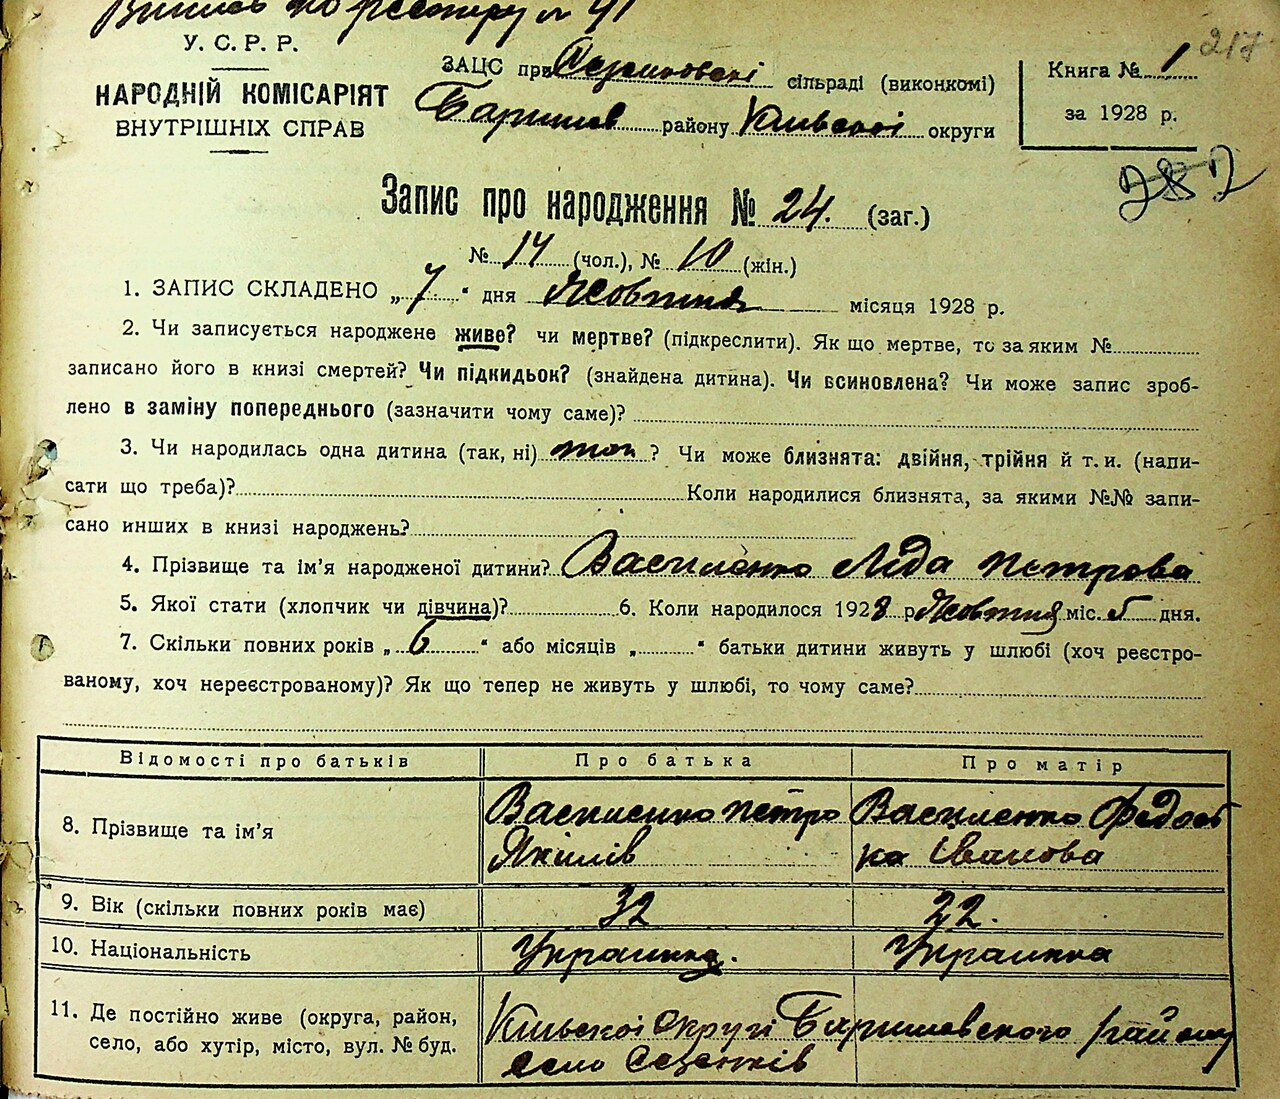 Випись по реєстру № 41
217
У. С. Р. Р.
НАРОДНІЙ КОМІСАРІЯТ
ВНУТРІШНІХ СПРАВ
ЗАЦС при сільраді (виконкомі)
Баришев району Київської округи
Книга № 1
за 1928 р.
282
Запис про народження № 24. (заг.)
№ 14 (чол.), № 10 (жін.)
1. ЗАПИС СКЛАДЕНО „ 7 “ дня Жовтня місяця 1928 р.
2. Чи записується народжене живе? чи мертве? (підкреслити). Як що мертве, то за яким №
записано його в книзі смертей? Чи підкидьок? (знайдена дитина). Чи всиновлена? Чи може запис зроб-
лено в заміну попереднього (зазначити чому саме)?
3. Чи народилась одна дитина (так, ні) так ? Чи може близнята: двійня, трійня й т. и. (напи-
сати що треба)? Коли народилися близнята, за якими №№ запи-
сано инших в книзі народжень?
4. Прізвище та ім’я народженої дитини? Василенко Ліда Петрова
5. Якої стати (хлопчик чи дівчина)? 6. Коли народилося 1928 р. Жовтня міс. 5 дня.
7. Скільки повних років „ 6 “ або місяців „ “ батьки дитини живуть у шлюбі (хоч реєстро-
ваному, хоч нереєстрованому)? Як що тепер не живуть у шлюбі, то чому саме?
Відомості про батьків Про батька Про матір
8. Прізвище та ім’я Василенко Петро Василенко Федось
Якилів ка Іванова
9. Вік (скільки повних років має) 32 22.
10. Національність Украинец. Украинка
11. Де постійно живе (округа, район,
село, або хутір, місто, вул. № буд.
Київскої округі Баришевского району
село Сезенків